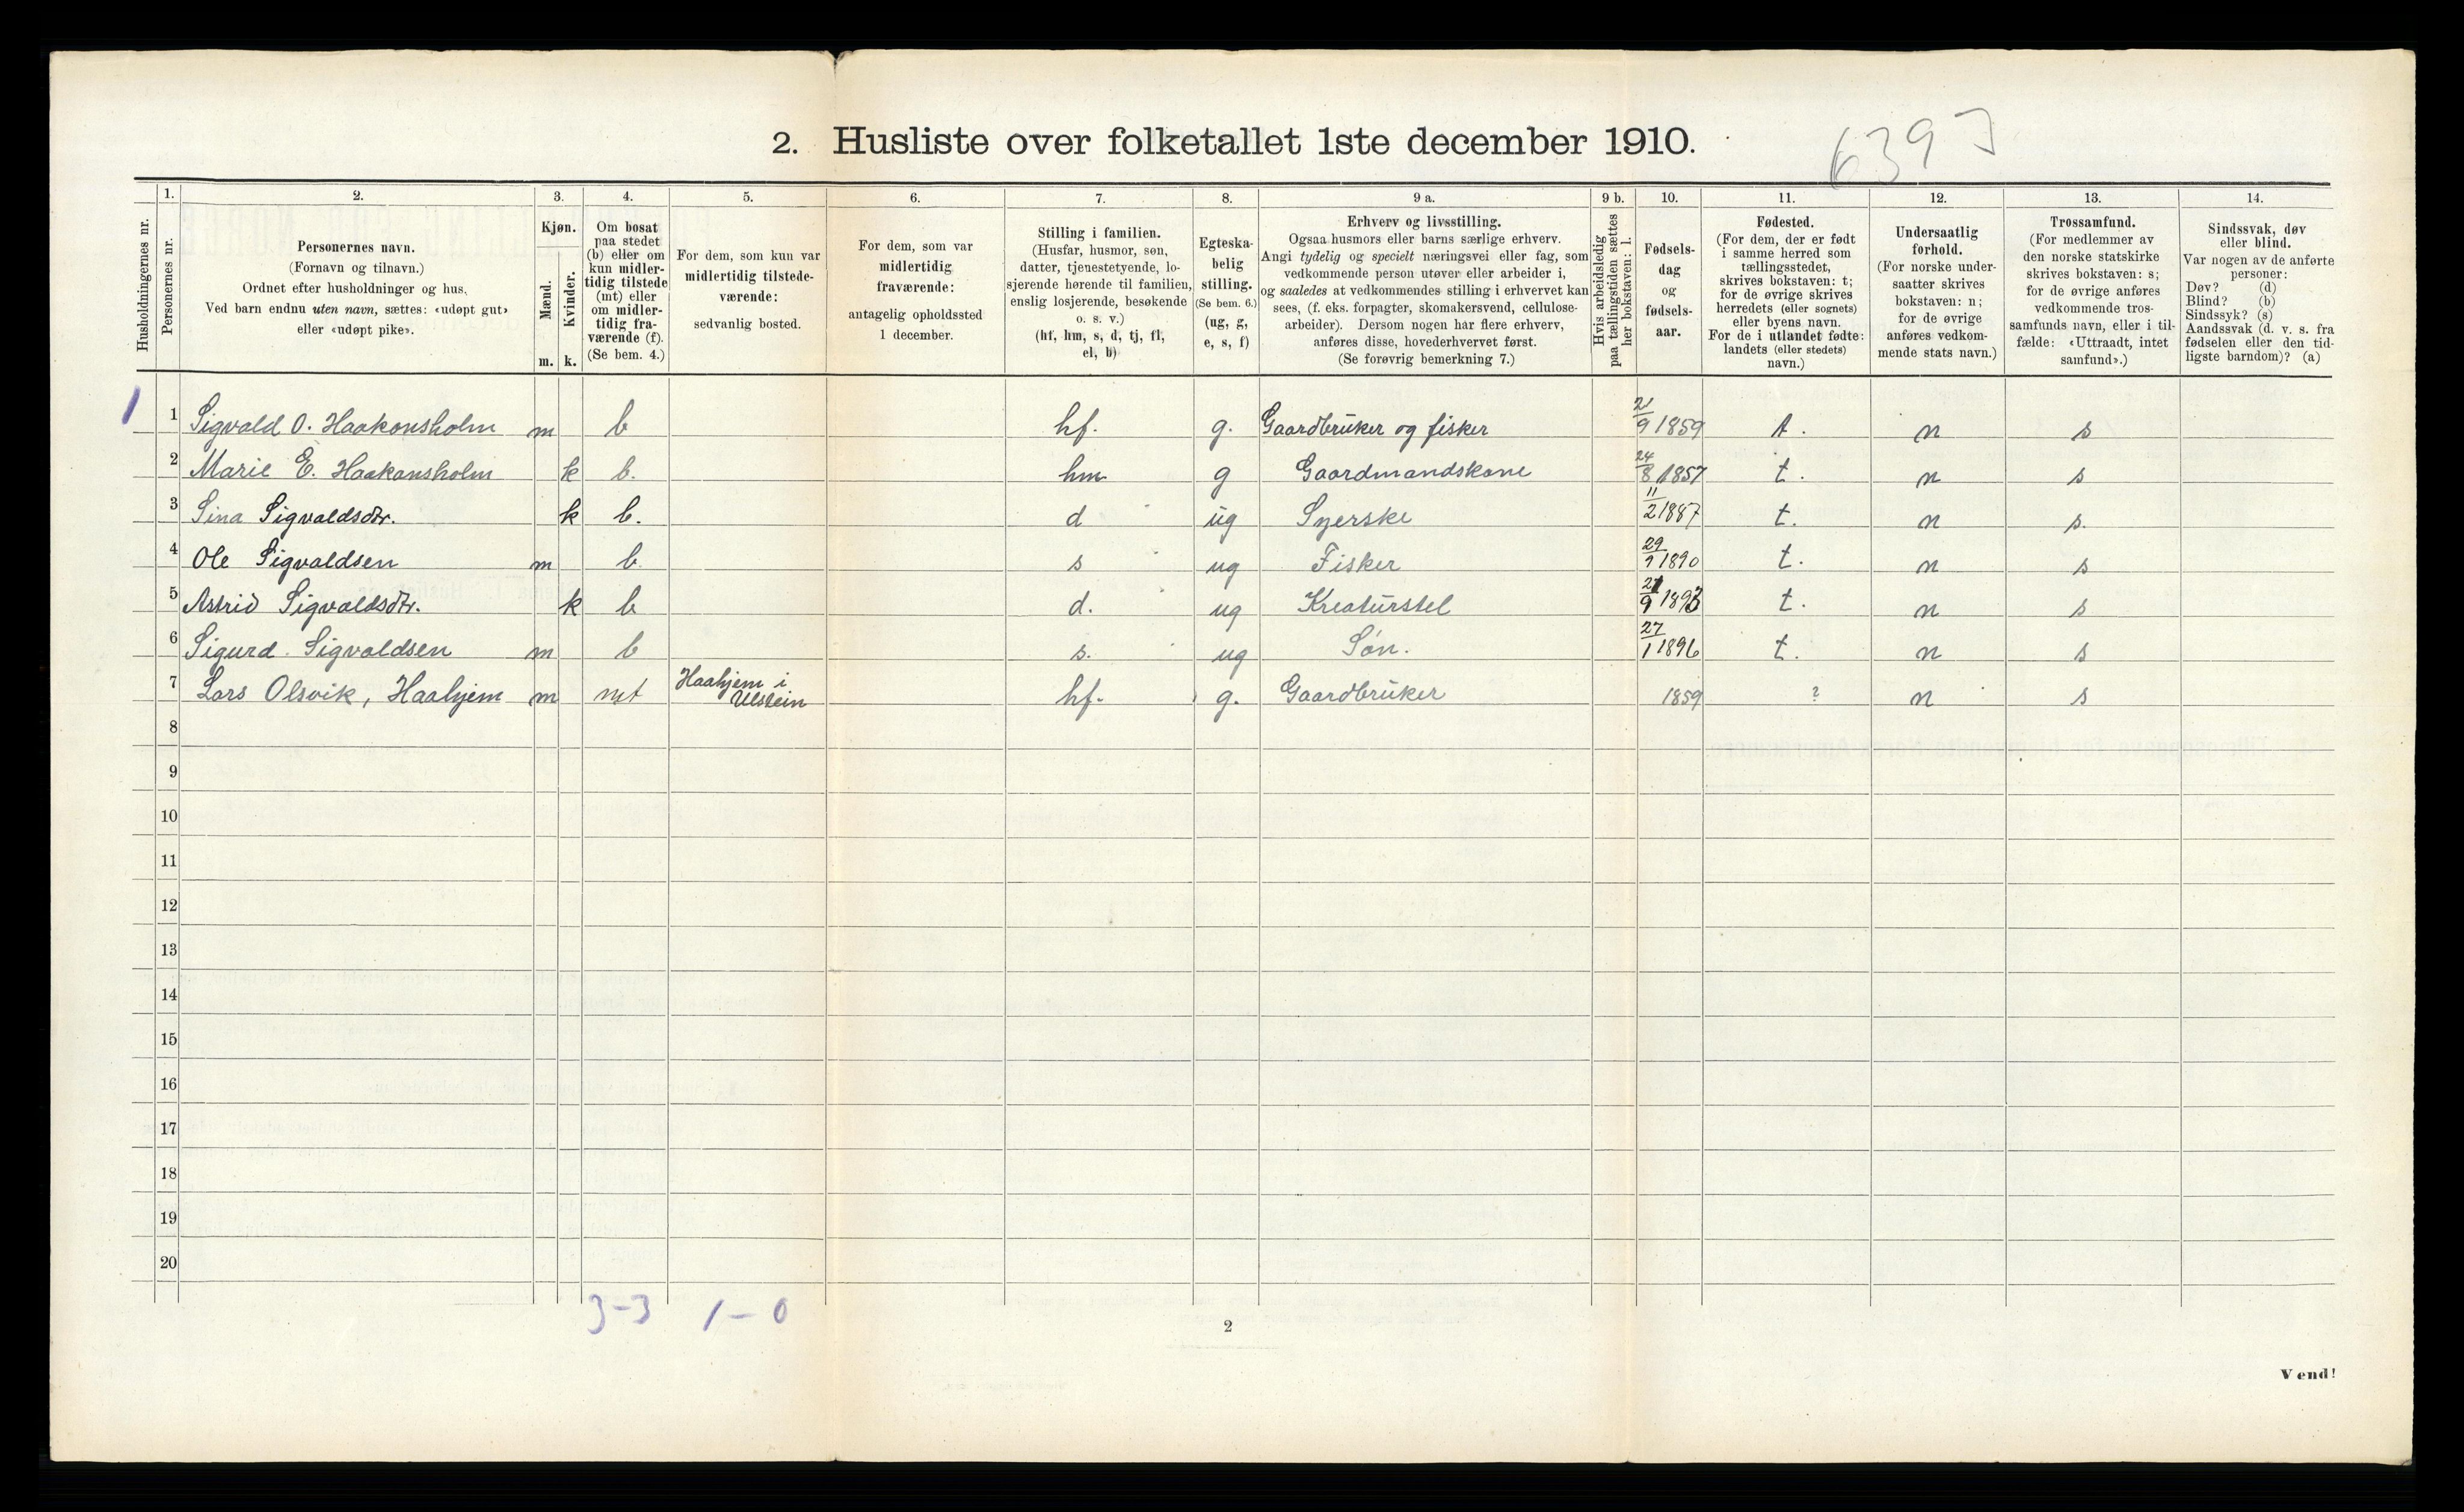 2. Husliste over folketallet 1ste december 1910.
1. 2. 3. 4. 5. 6. 7. 8. 9 a. 9 b. 10. 11. 12. 13. 14.
Husholdningernes nr.
Personernes nr.
Personernes navn.
(Fornavn og tilnavn.)
Ordnet efter husholdninger og hus.
Ved barn endnu uten navn, sættes: «udøpt gut»
eller «udøpt pike».
Kjøn.
Mænd.
m.
Kvinder.
k.
Om bosat
paa stedet
(b) eller om
kun midler-
tidig tilstede
(mt) eller
om midler-
tidig fra-
værende (f).
(Se bem. 4.)
For dem, som kun var
midlertidig tilstede-
værende:
sedvanlig bosted.
For dem, som var
midlertidig
fraværende:
antagelig opholdssted
1 december.
Stilling i familien.
(Husfar, husmor, søn,
datter, tjenestetyende, lo-
sjerende hørende til familien,
enslig losjerende, besøkende
o. s. v.)
(hf, hm, s, d, tj, fl,
el, b)
Egteska-
belig
stilling.
(Se bem. 6.)
(ug, g,
e, s, f)
Erhverv og livsstilling.
Ogsaa husmors eller barns særlige erhverv.
Angi tydelig og specielt næringsvei eller fag, som
vedkommende person utøver eller arbeider i,
og saaledes at vedkommendes stilling i erhvervet kan
sees, (f. eks. forpagter, skomakersvend, cellulose-
arbeider). Dersom nogen har flere erhverv,
anføres disse, hovederhvervet først.
(Se forøvrig bemerkning 7.)
Hvis arbeidsledig
paa tællingstiden sættes
her bokstaven: l.
Fødsels-
dag
og
fødsels-
aar.
Fødested.
(For dem, der er født
i samme herred som
tællingsstedet,
skrives bokstaven: t;
for de øvrige skrives
herredets (eller sognets)
eller byens navn.
For de i utlandet fødte:
landets (eller stedets)
navn.)
Undersaatlig
forhold.
(For norske under-
saatter skrives
bokstaven: n;
for de øvrige
anføres vedkom-
mende stats navn.)
Trossamfund.
(For medlemmer av
den norske statskirke
skrives bokstaven: s;
for de øvrige anføres
vedkommende tros-
samfunds navn, eller i til-
fælde: «Uttraadt, intet
samfund».)
Sindssvak, døv
eller blind.
Var nogen av de anførte
personer:
Døv? (d)
Blind? (b)
Sindssyk? (s)
Aandssvak (d. v. s. fra
fødselen eller den tid-
ligste barndom)? (a)
1 1 Sigvald O. Haakonsholm m b hf. g. Gaardbruker og fisker 21/9 1859 t. n s
2 Marie E. Haakonsholm k b. hm g Gaardmandskone 24/8 1857 t. n s
3 Sina Sigvaldsdtr. k b. d ug Syerske 11/2 1887 t. n s.
4 Ole Sigvaldsen m b. s ug Fisker 29/9 1890 t. n s
5 Astrid Sigvaldsdtr. k b d. ug Kreaturstel 21/9 1893 t. n s
6 Sigurd Sigvaldsen m b s. ug Søn. 27/1 1896 t. n s
7 Lars Olsvik, Haahjem m mt Haahjem i Ulstein hf. g. Gaardbruker 1859 ? n s
8
9
10
11
12
13
14
15
16
17
18
19
20
3-3 1-0
2
Vend!